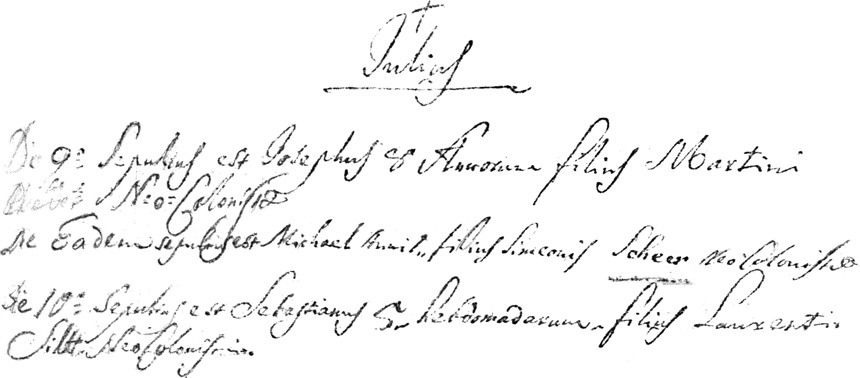 Julius
Die 9a Sepultus est Josephus 8 Annorum filius Martini
Neo=Colonistæ
Die Eadem sepultus est Michael filius Simeonis Scheer NeoColonistæ
Die 10a Sepultus est Sebastianus 8 hebdomadarum filius Laurentii
NeoColonistæ.